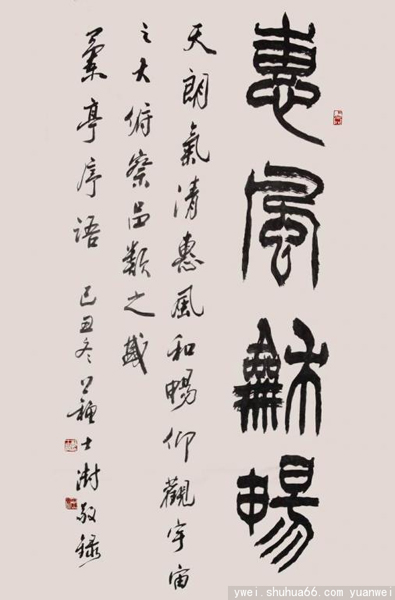 惠風龢暢
天朗氣清惠風和暢仰觀宇宙
之大俯察品類之盛
蘭亭序語 己丑冬 蘇士澍敬錄
ywei.shuhua66.com yuanwei